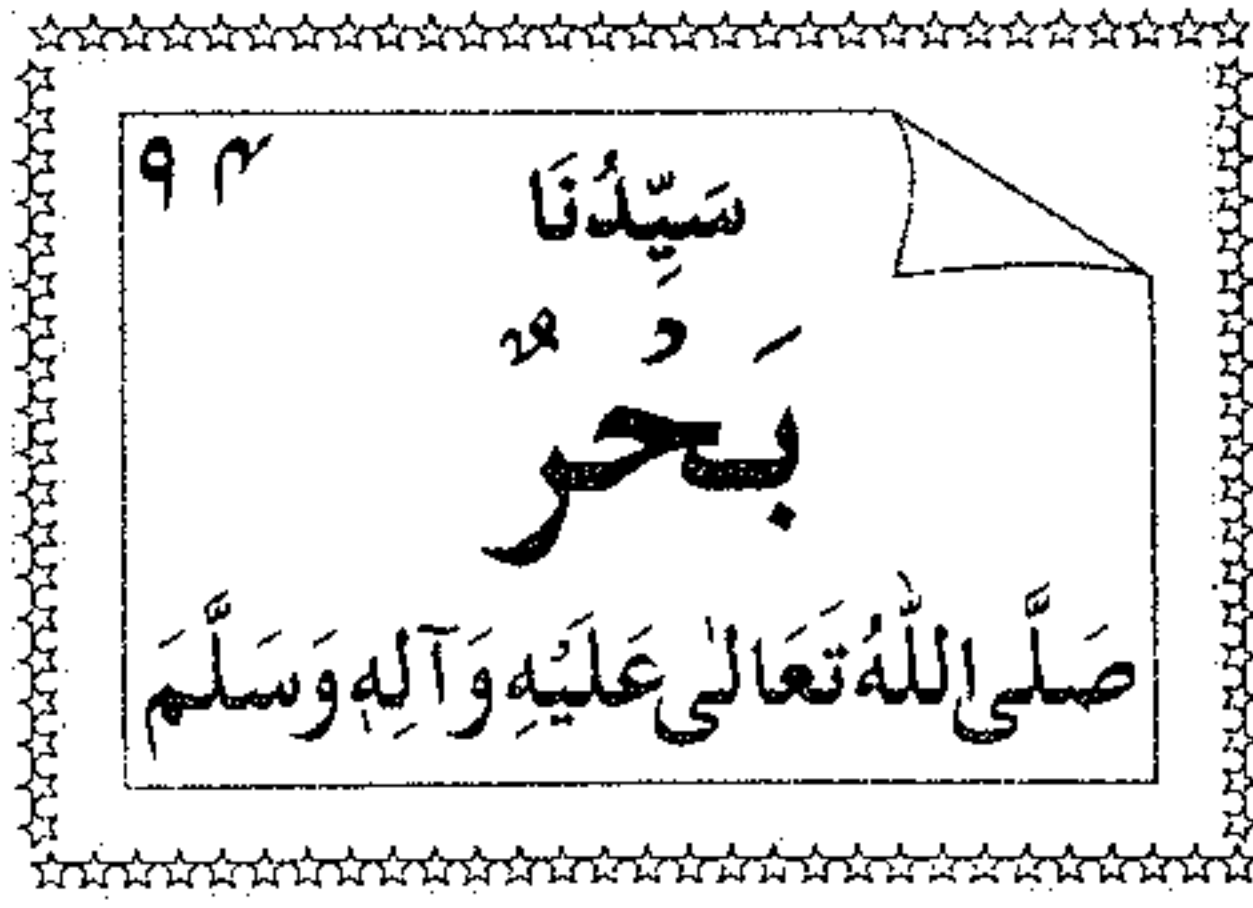 ۹۴
سَيِّدُنَا
بَحْرٌ
صَلَّى اللّٰهُ تَعَالىٰ عَلَيْهِ وَآلِهٖ وَسَلَّمَ